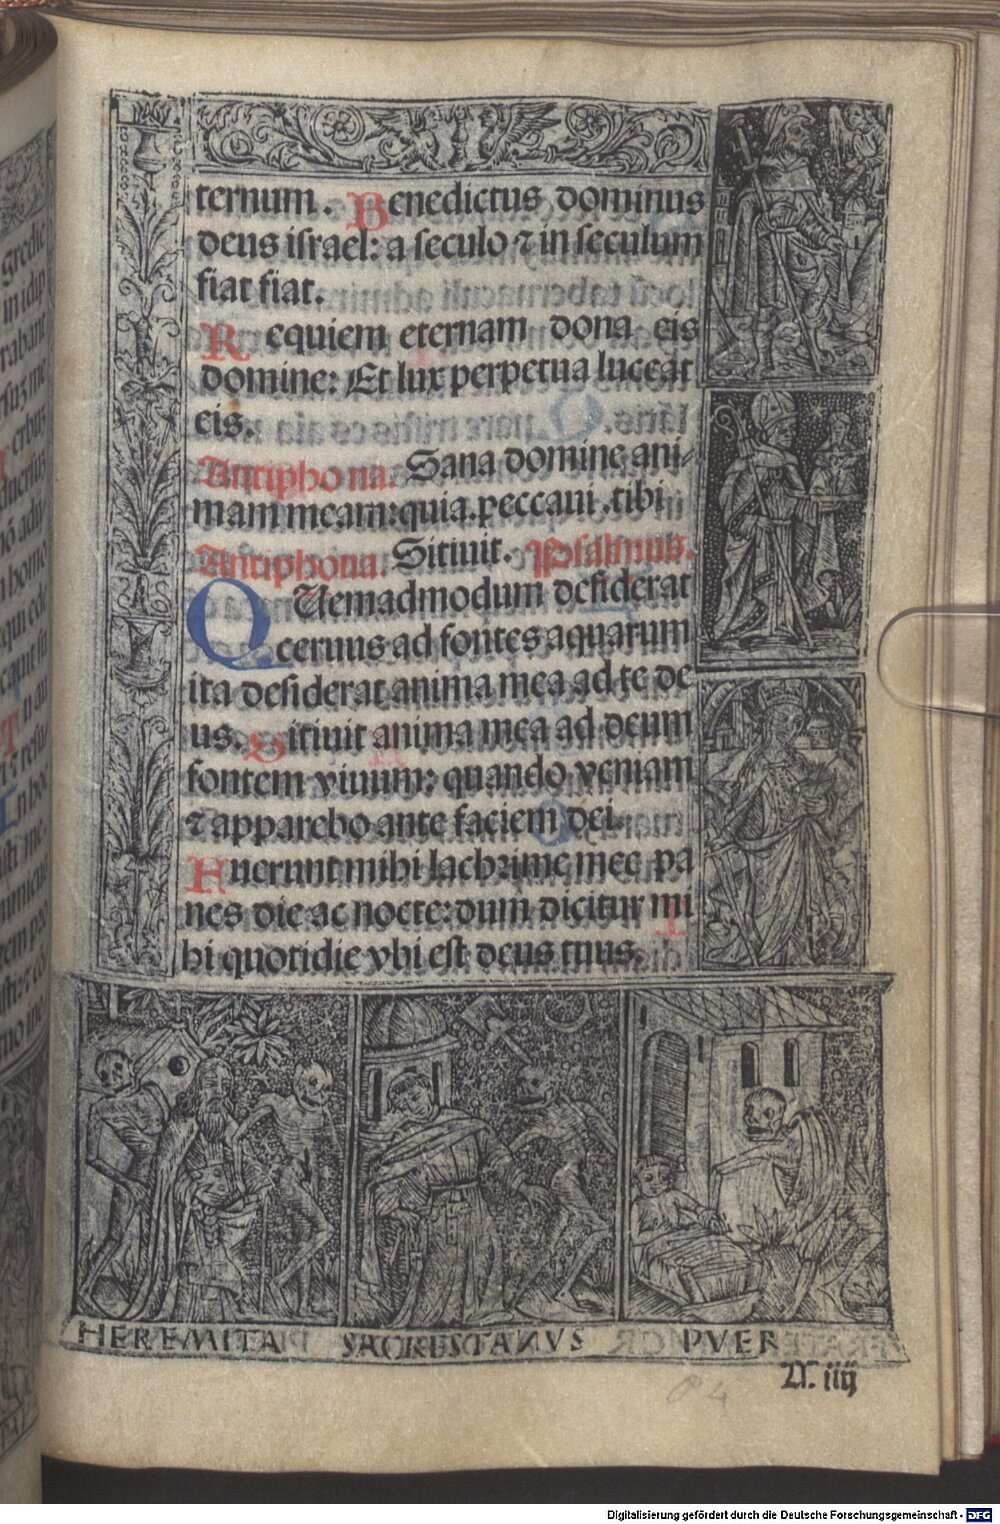 ternum. Benedictus dominus
deus israel: a seculo ⁊ in seculum
fiat fiat.
Requiem eternam dona eis
domine: Et lux perpetua luceat
eis.
Antiphona. Sana domine ani⸗
mam meam: quia. peccaui .tibi
Antiphona. Sitiuit. Psalmus.
QUemadmodum desiderat
ceruus ad fontes aquarum
ita desiderat anima mea ad te de
us. Sitiuit anima mea ad deum
fontem viuum: quando veniam
⁊ apparebo ante faciem dei.
Fuerunt mihi lachrime mee pa
nes die ac nocte: dum dicitur mi
hi quotidie vbi est deus tuus.
HEREMITA SACRISTANVS PVER
iiij
Digitalisierung gefördert durch die Deutsche Forschungsgemeinschaft - DFG